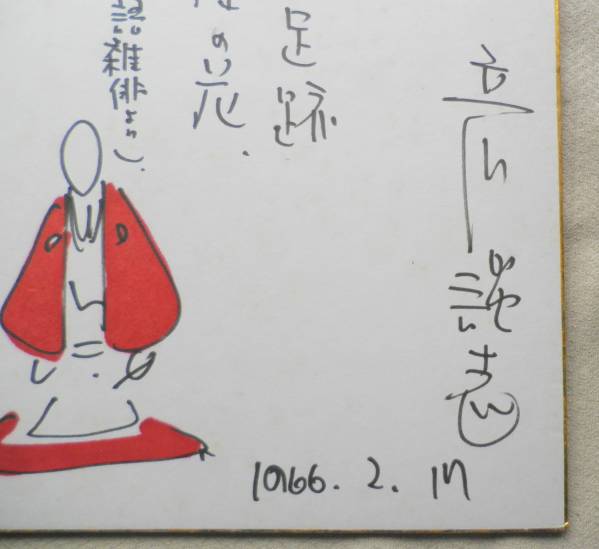 立川談志
足跡
の花.
語雑俳より)
1966. 2. 17